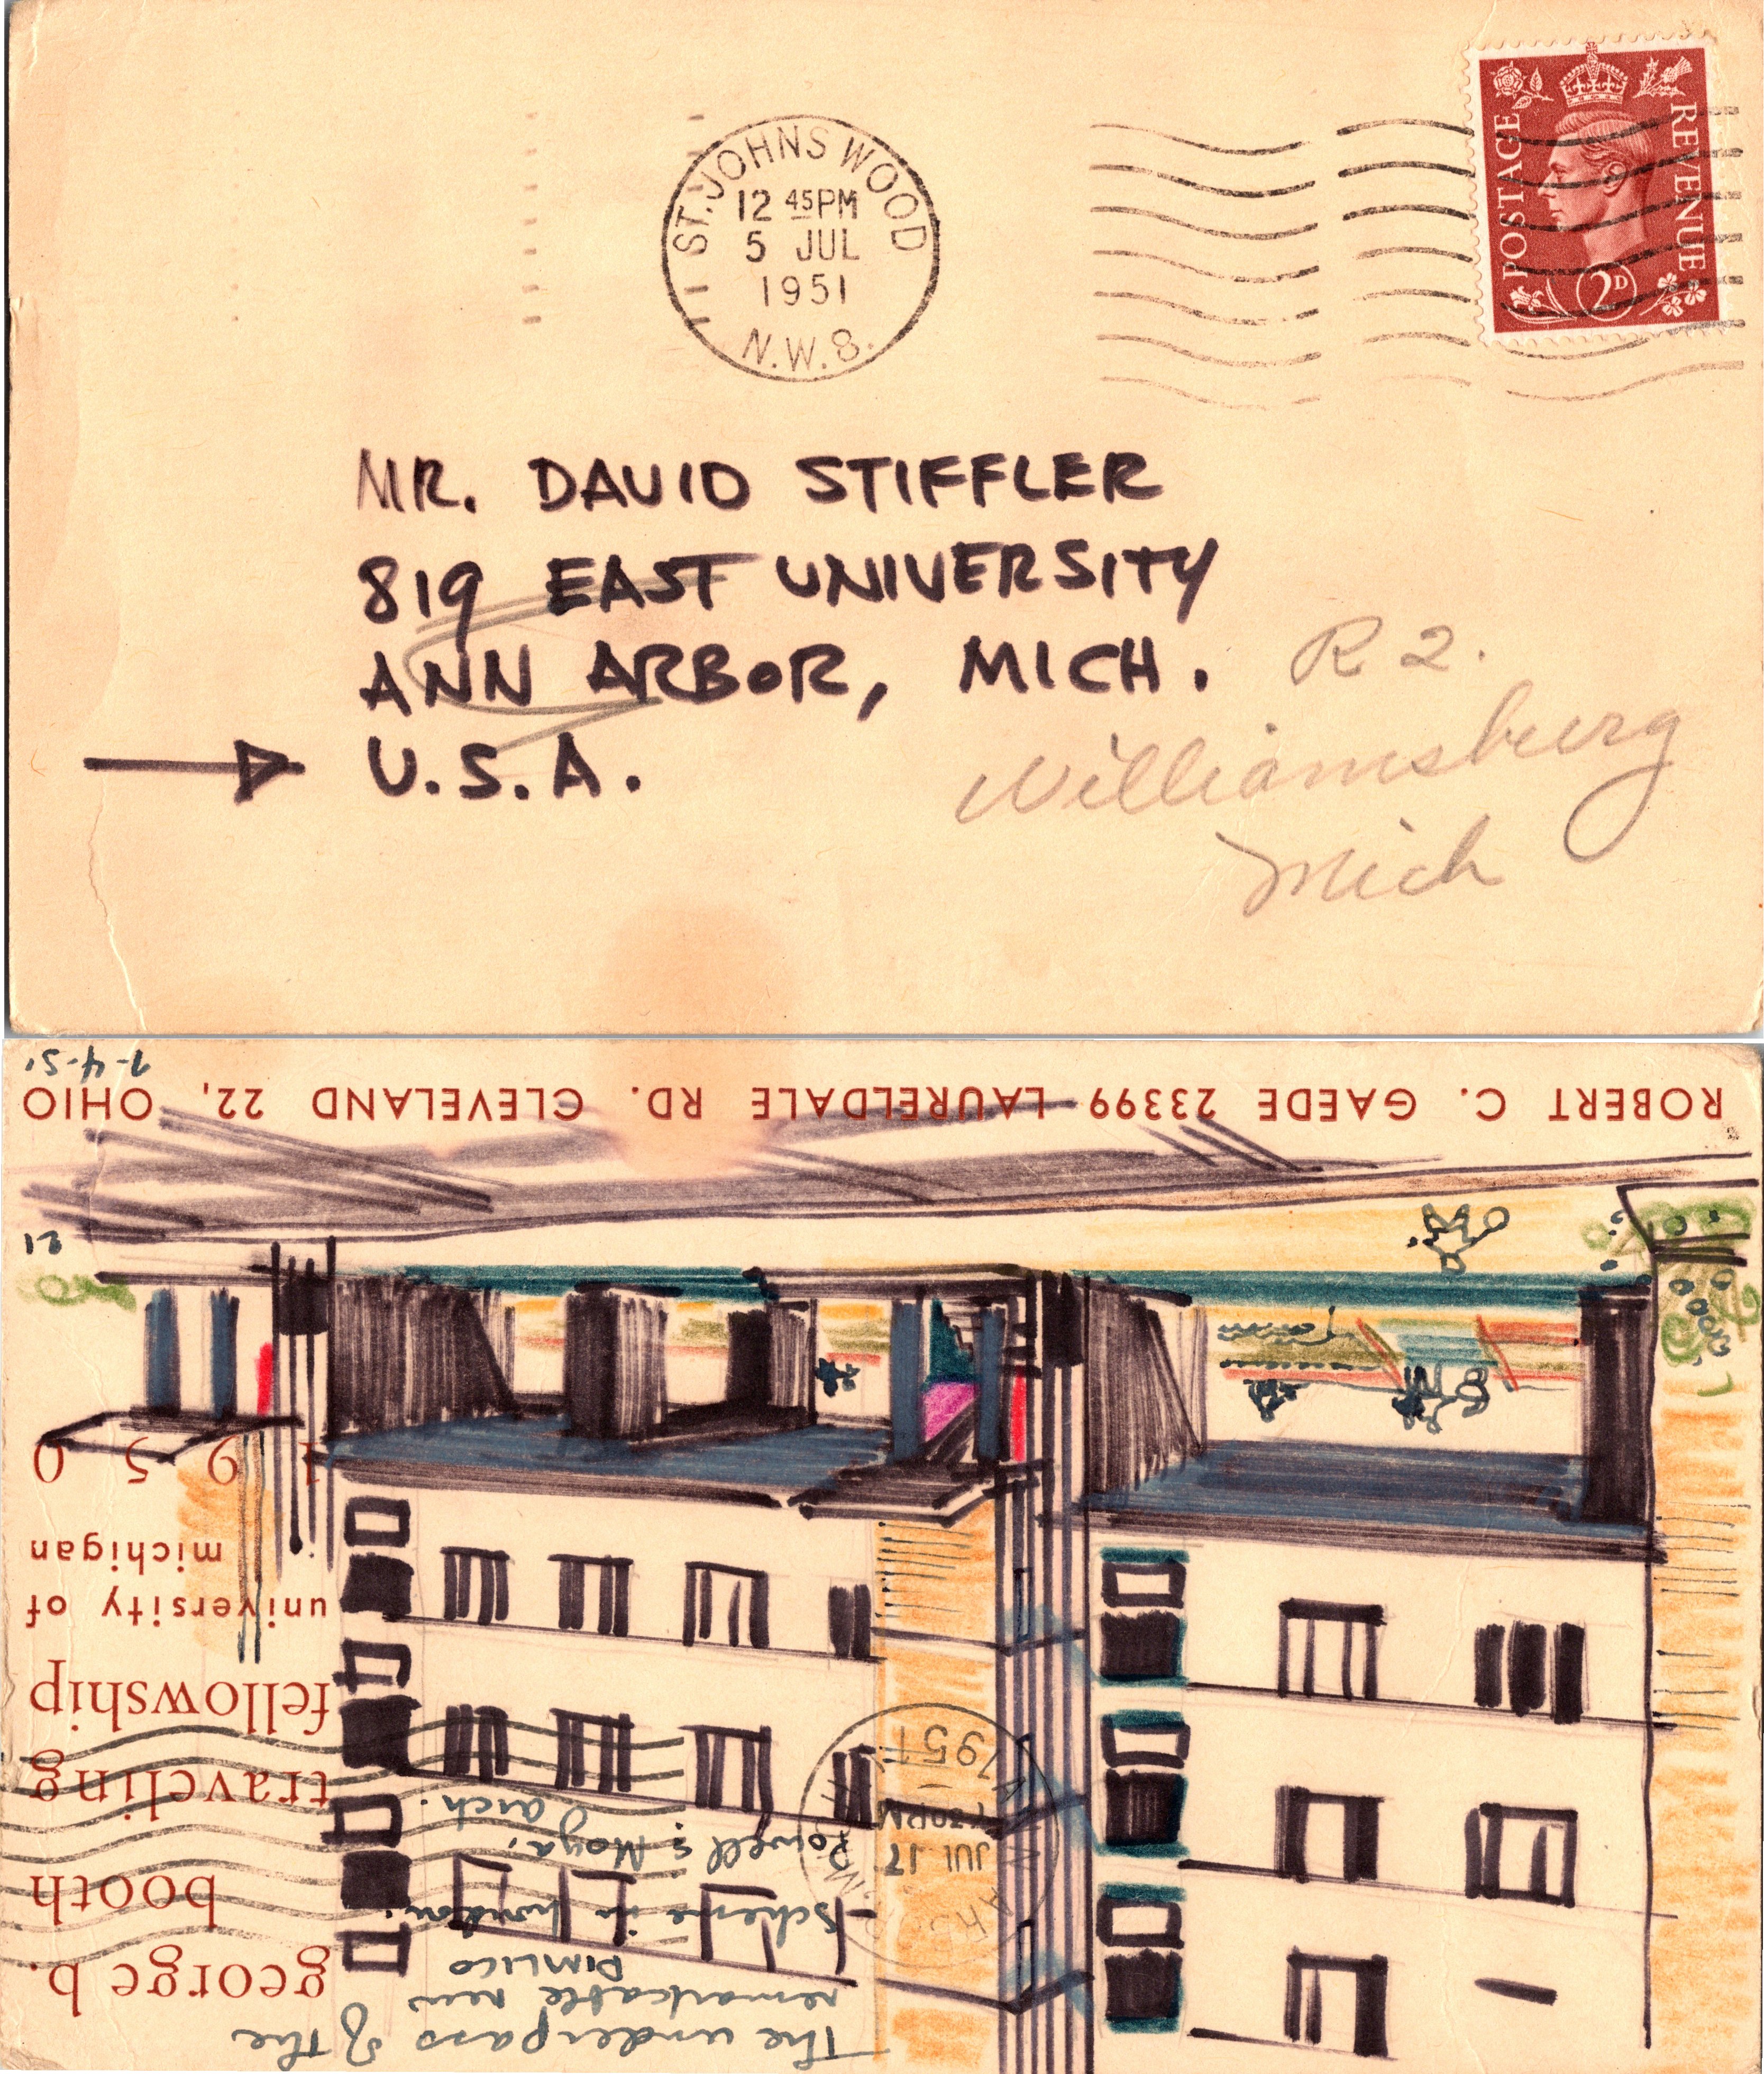 ST. JOHNS WOOD
12 45PM
5 JUL
1951
N.W.8.
POSTAGE
REVENUE
2D
MR. DAVID STIFFLER
819 EAST UNIVERSITY
ANN ARBOR, MICH.
U.S.A.
R 2.
Williamsburg
Mich
The underpass of the
remarkable new
PIMLICO
scheme in London.
Powell & Moya,
arch.
george b.
booth
traveling
fellowship
university of
michigan
1950
JUL 17
7 30PM
1951
21
ROBERT C. GAEDE 23399 LAURELDALE RD. CLEVELAND 22, OHIO
7-4-51